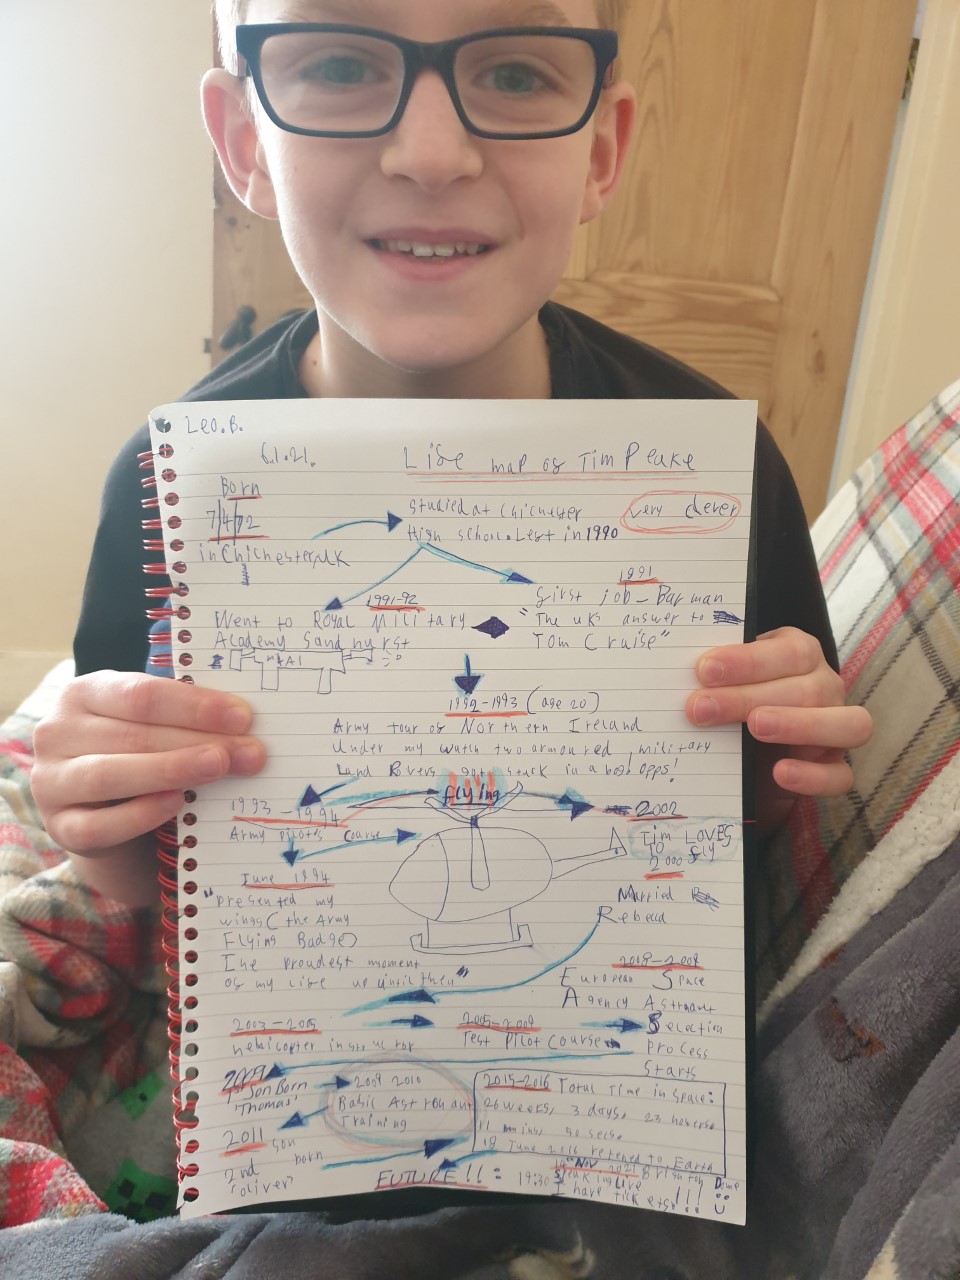 Leo.B.
6.1.21.
Life map of Tim Peake
Born
7/4/72
in Chichester, UK
Studied at Chichester
High school. Left in 1990
very clever
1991
first job - Barman
"The UKs answer to
Tom Cruise"
1991-92
Went to Royal Military
Academy Sandhurst
1992-1993 (age 20)
Army tour of Northern Ireland
Under my watch two armoured military
Land Rovers got stuck in a bog opps!
flying
1993-1994
Army pilots course
June 1994
"presented my
wings (the Army
Flying Badge)
The proudest moment
of my life up until then"
2002
Tim LOVES
to fly
2000
Married
Rebecca
2008-2009
European Space
Agency Astronaut
Selection
Process
Starts
2003-2005
helicopter instructor
2005-2009
Test Pilot Course
2009
Son Born
'Thomas'
2009 2010
Basic Astronaut
Training
2011 son
born
2nd
'Oliver'
2015-2016 Total Time in space:
26 weeks, 3 days, 23 howers
11 mins, 40 secs.
18 June 2016 retened to Earth
FUTURE!!:
Nov 2021 Brighton Dome
19:30 Speaking Live
I have tickets!!!